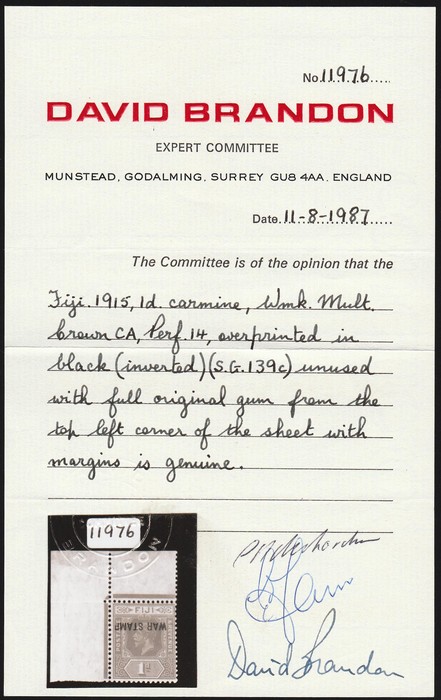 No. 11976
DAVID BRANDON
EXPERT COMMITTEE
MUNSTEAD, GODALMING, SURREY GU8 4AA, ENGLAND
Date. 11-8-1987
The Committee is of the opinion that the
Fiji. 1915, 1d. carmine, Wmk. Mult.
Crown CA, Perf. 14, overprinted in
black (inverted) (S.G. 139c) unused
with full original gum from the
top left corner of the sheet with
margins is genuine.
11976
BRANDON
FIJI
WAR STAMP
POSTAGE
1D
David Brandon